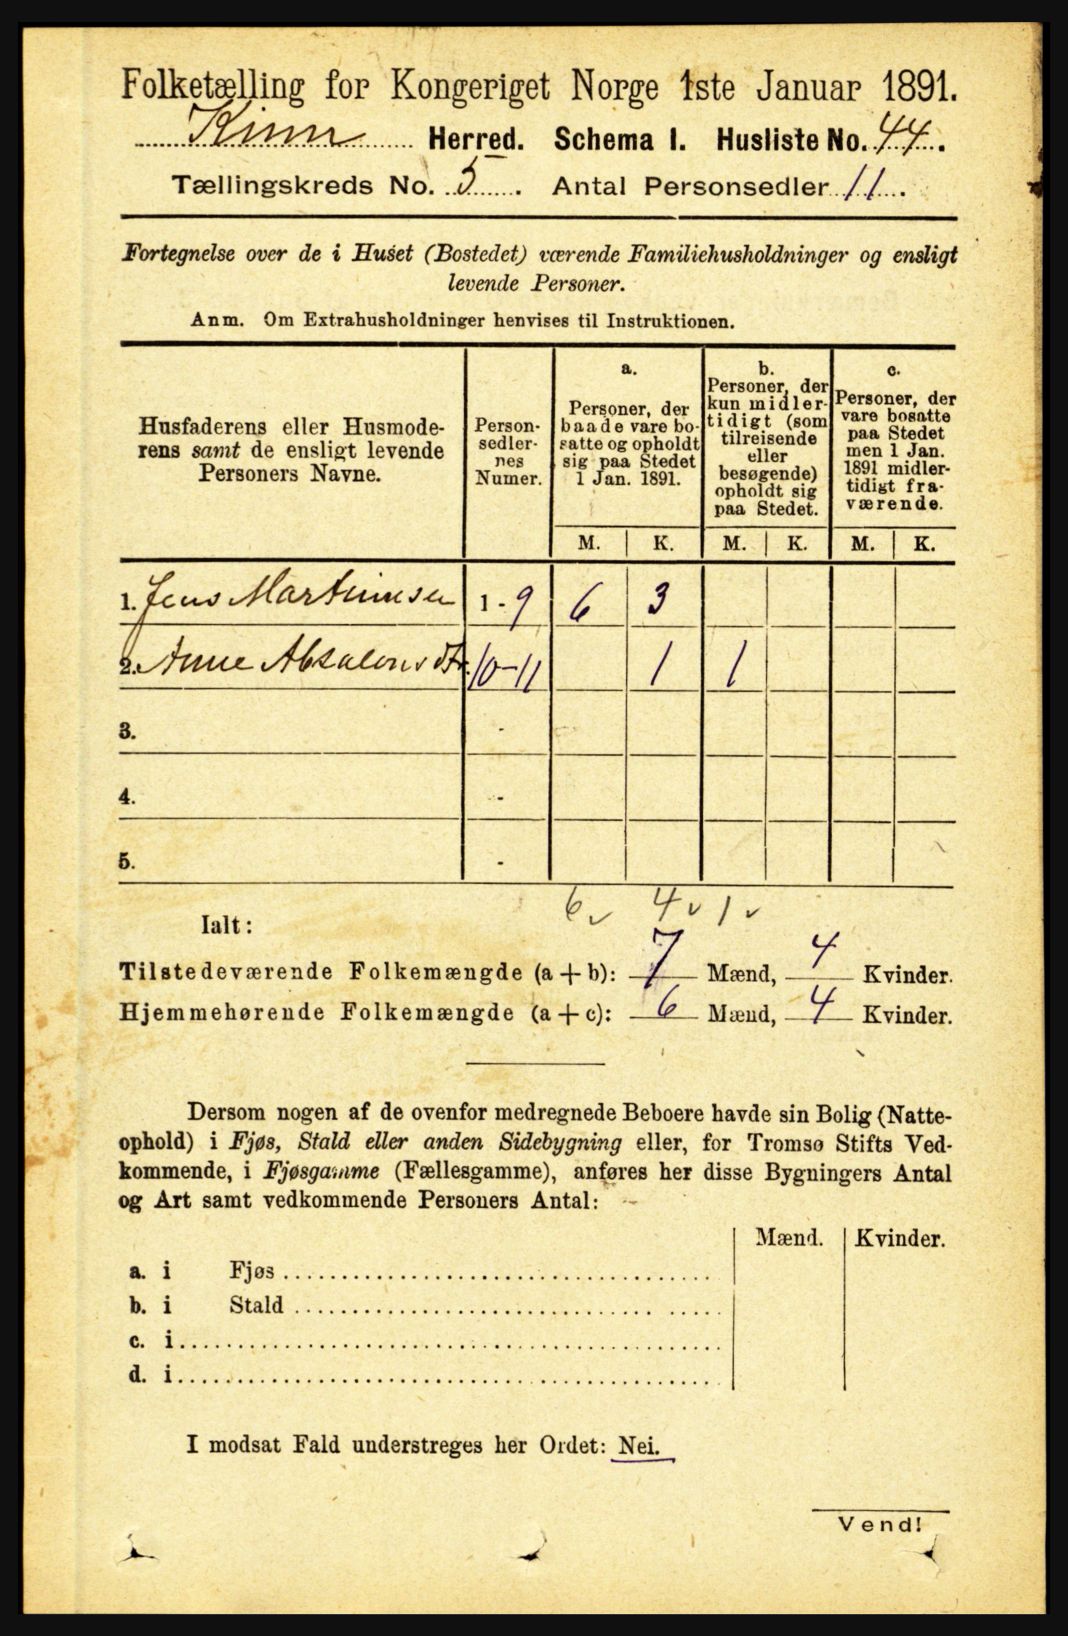 Folketælling for Kongeriget Norge 1ste Januar 1891.
Kinn Herred. Schema I. Husliste No. 44.
Tællingskreds No. 5. Antal Personsedler 11.
Fortegnelse over de i Huset (Bostedet) værende Familiehusholdninger og ensligt
levende Personer.
Anm. Om Extrahusholdninger henvises til Instruktionen.
Husfaderens eller Husmode-
rens samt de ensligt levende
Personers Navne.
Person-
sedler-
nes
Numer.
a.
Personer, der
baade vare bo-
satte og opholdt
sig paa Stedet
1 Jan. 1891.
b.
Personer, der
kun midler-
tidigt (som
tilreisende
eller
besøgende)
opholdt sig
paa Stedet.
c.
Personer, der
vare bosatte
paa Stedet
men 1 Jan.
1891 midler-
tidigt fra-
værende.
M. K. M. K. M. K.
1. Jens Martinusen 1 - 9 6 3
2. Anne Absalonsdtr. 10-11 1 1
3. -
4. -
5. -
6 4 1
Ialt:
Tilstedeværende Folkemængde (a + b): 7 Mænd, 4 Kvinder.
Hjemmehørende Folkemængde (a + c): 6 Mænd, 4 Kvinder.
Dersom nogen af de ovenfor medregnede Beboere havde sin Bolig (Natte-
ophold) i Fjøs, Stald eller anden Sidebygning eller, for Tromsø Stifts Ved-
kommende, i Fjøsgamme (Fællesgamme), anføres her disse Bygningers Antal
og Art samt vedkommende Personers Antal:
Mænd. Kvinder.
a. i Fjøs
b. i Stald
c. i
d. i
I modsat Fald understreges her Ordet: Nei.
Vend!